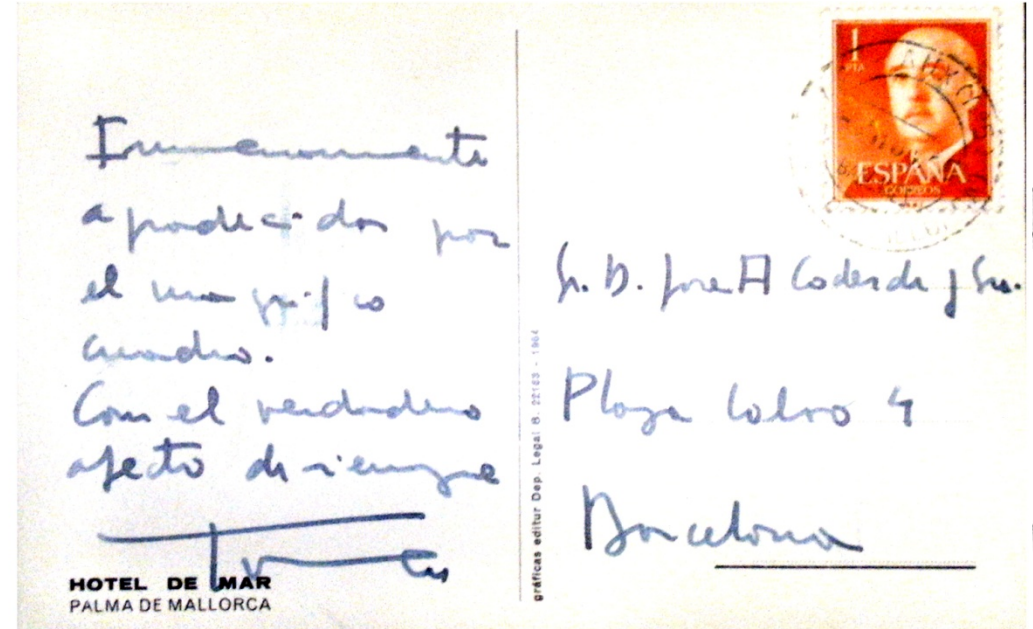 Inmensamente
agradecidos por
el magnífico
cuadro.
Con el verdadero
afecto de siempre
HOTEL DE MAR
PALMA DE MALLORCA
gráficas editur Dep. Legal B. 22163 - 1964
1
PTA
ESPAÑA
CORREOS
Sr. D. Jose A Coderch y Sra.
Plaza Calvo 4
Barcelona